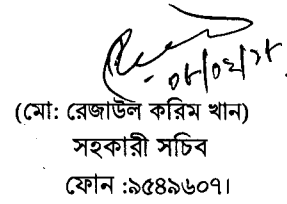 ০৮/০২/১৮
(মো: রেজাউল করিম খান)
সহকারী সচিব
ফোন :৯৫৪৯৬০৭।